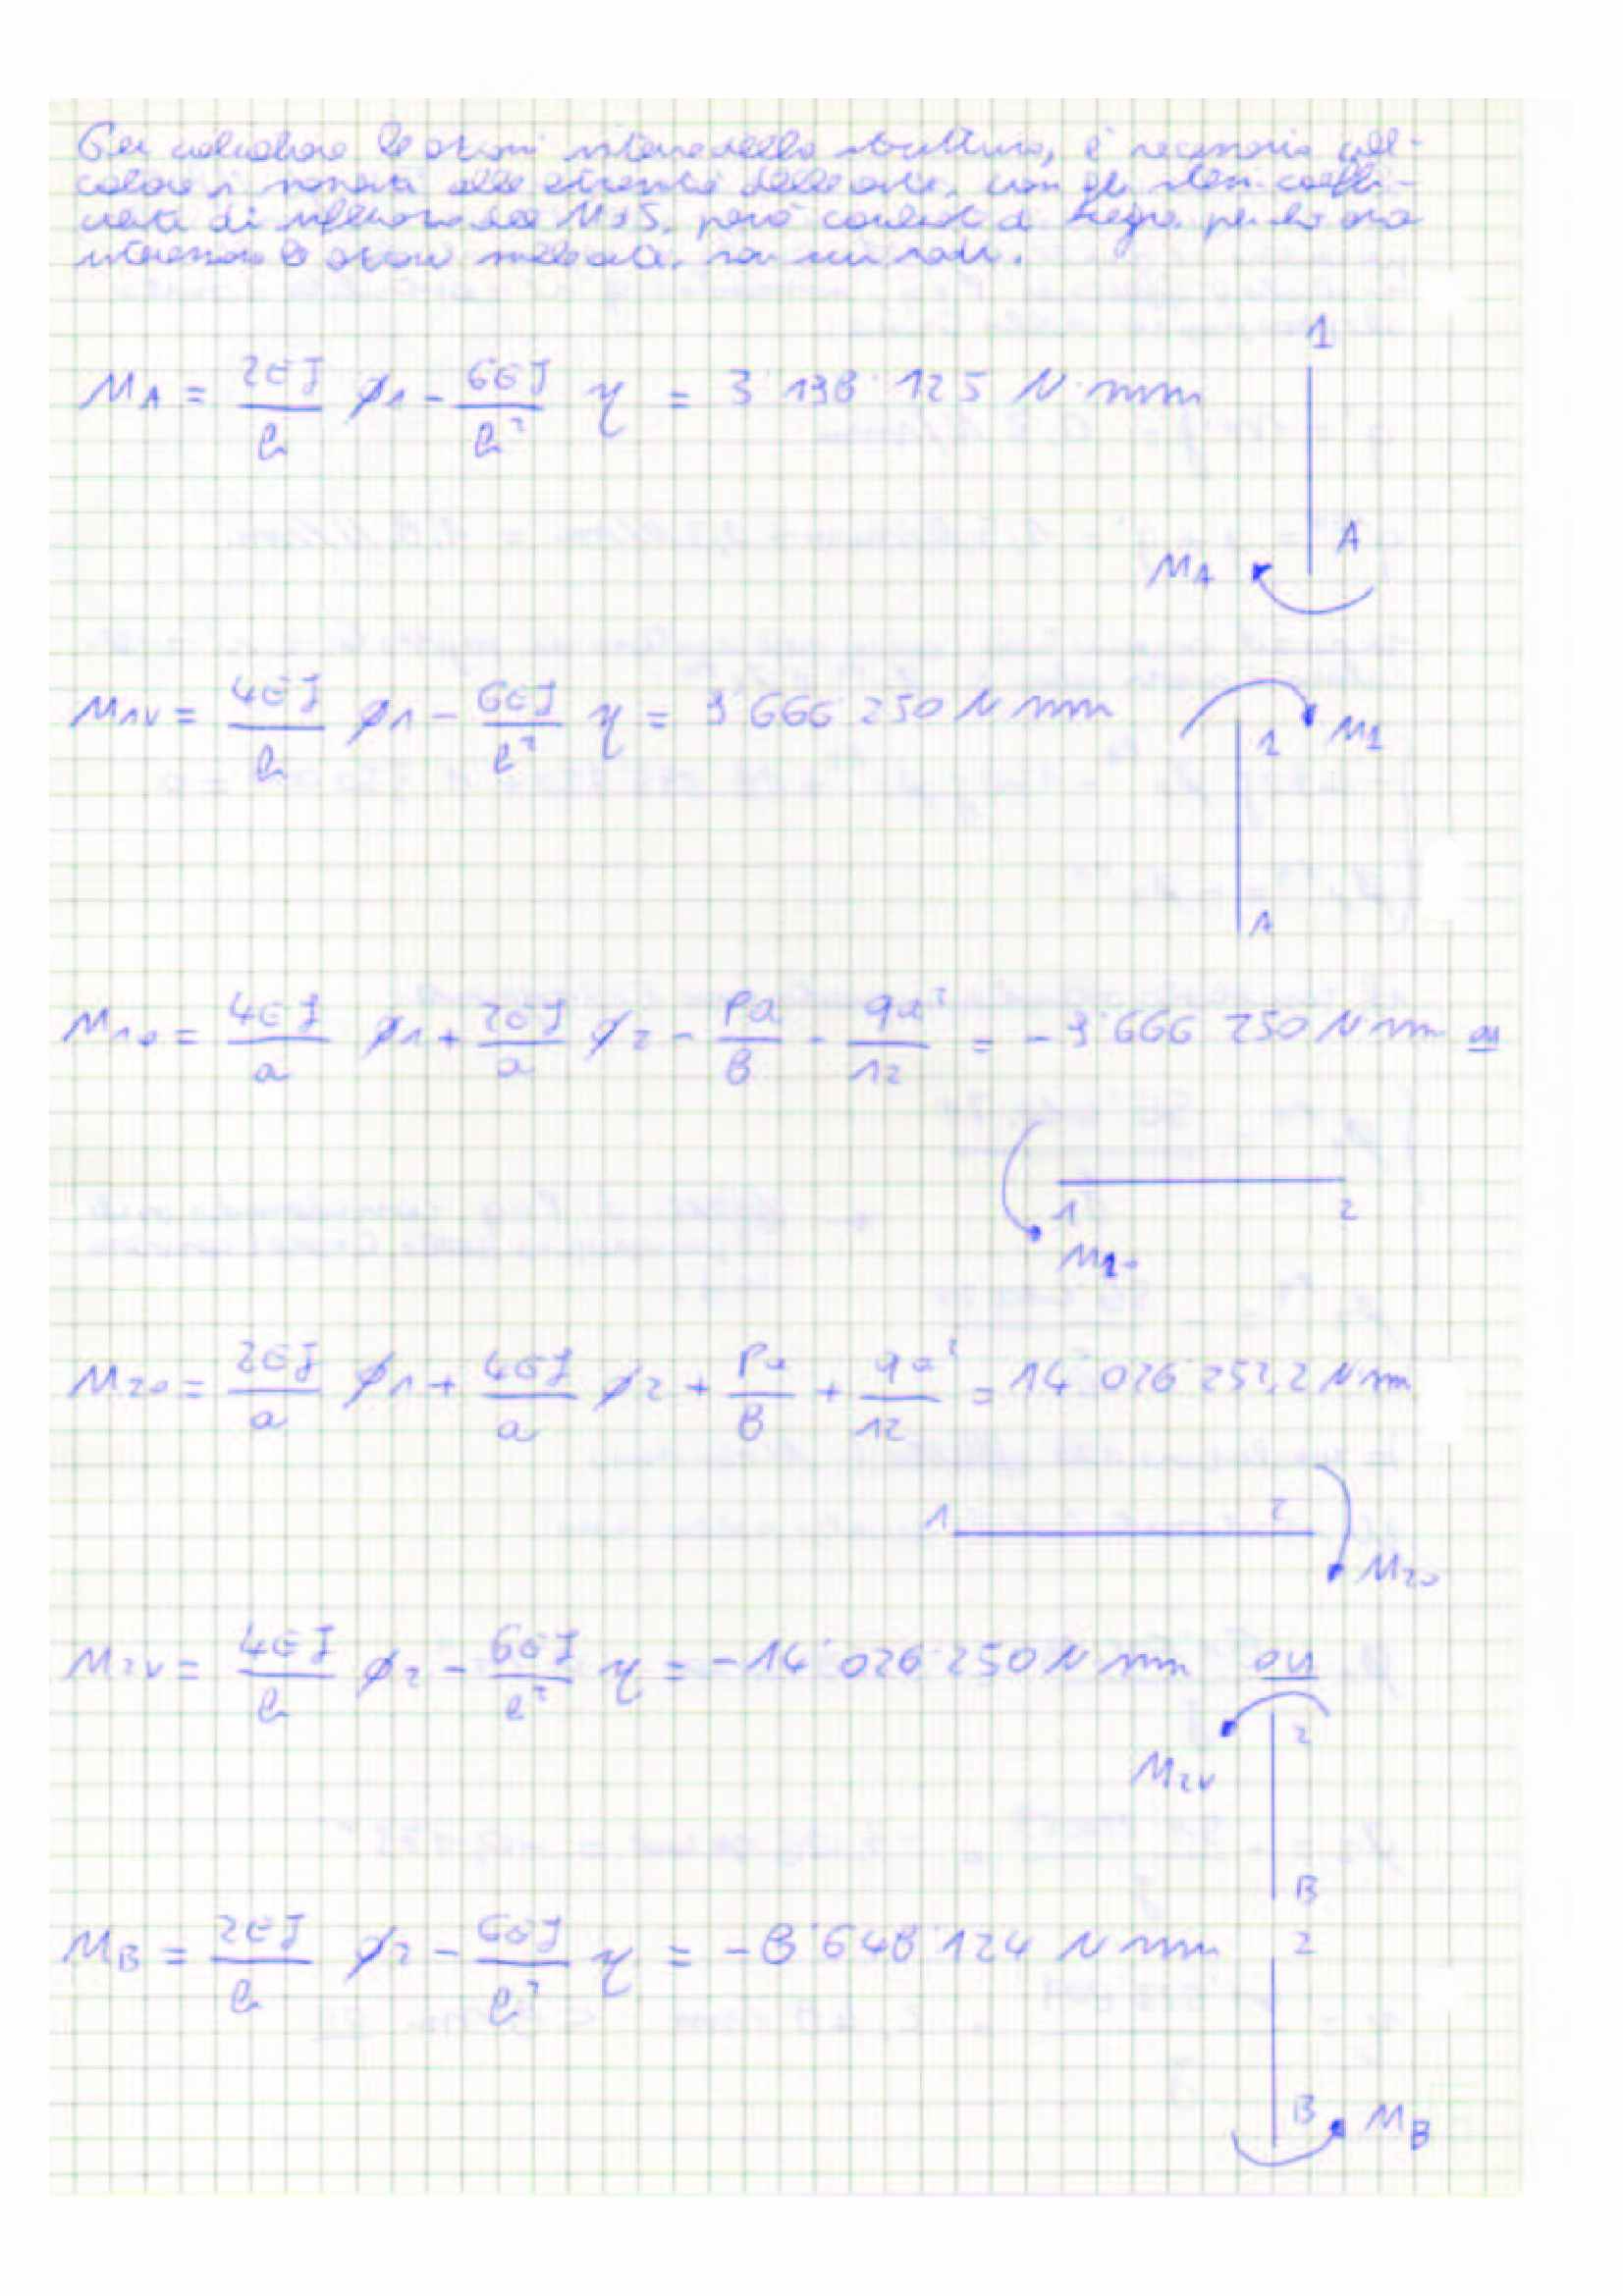 Per calcolare le azioni interne della struttura, è necessario cal-
colare i momenti alle estremità delle aste, con gli stessi coeffi-
cienti di influenza del M d S, però cambiati di segno, perché ora
interessano le azioni sulle aste, non sui nodi.
1
M_A = 2EJ/h φ1 - 6EJ/h² η = 3'198'125 N·mm
A
M_A
M_1v = 4EJ/h φ1 - 6EJ/h² η = 9'666'250 N mm
1 M_1
A
M_1o = 4EJ/a φ1 + 2EJ/a φ2 - Pa/8 - qa²/12 = -9'666'250 N mm
1 2
M_1o
M_2o = 2EJ/a φ1 + 4EJ/a φ2 + Pa/8 + qa²/12 = 14'026'252,2 N mm
1 2
M_2o
M_2v = 4EJ/h φ2 - 6EJ/h² η = -14'026'250 N mm
2
M_2v
B
M_B = 2EJ/h φ2 - 6EJ/h² η = -8'648'124 N mm
2
B M_B